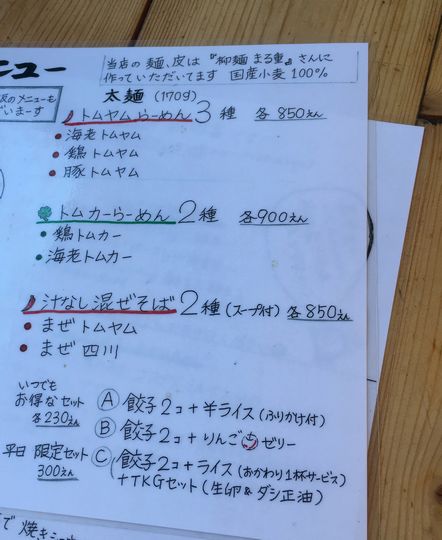 ニュー
当店の麺、皮は『柳麺 まる重』さんに
作っていただいてます 国産小麦100%
のメニューも
います
太麺 (170g)
トムヤムらーめん 3種 各850えん
海老トムヤム
鶏トムヤム
豚トムヤム
トムカーらーめん 2種 各900えん
鶏トムカー
海老トムカー
汁なし混ぜそば 2種(スープ付) 各850えん
まぜトムヤム
まぜ四川
いつでも
お得なセット
各230えん
Ⓐ 餃子2コ+半ライス(ふりかけ付)
Ⓑ 餃子2コ+りんごゼリー
平日限定セット
300えん
Ⓒ (餃子2コ+ライス(おかわり1杯サービス)
+TKGセット(生卵&ダシ正油)
で焼き